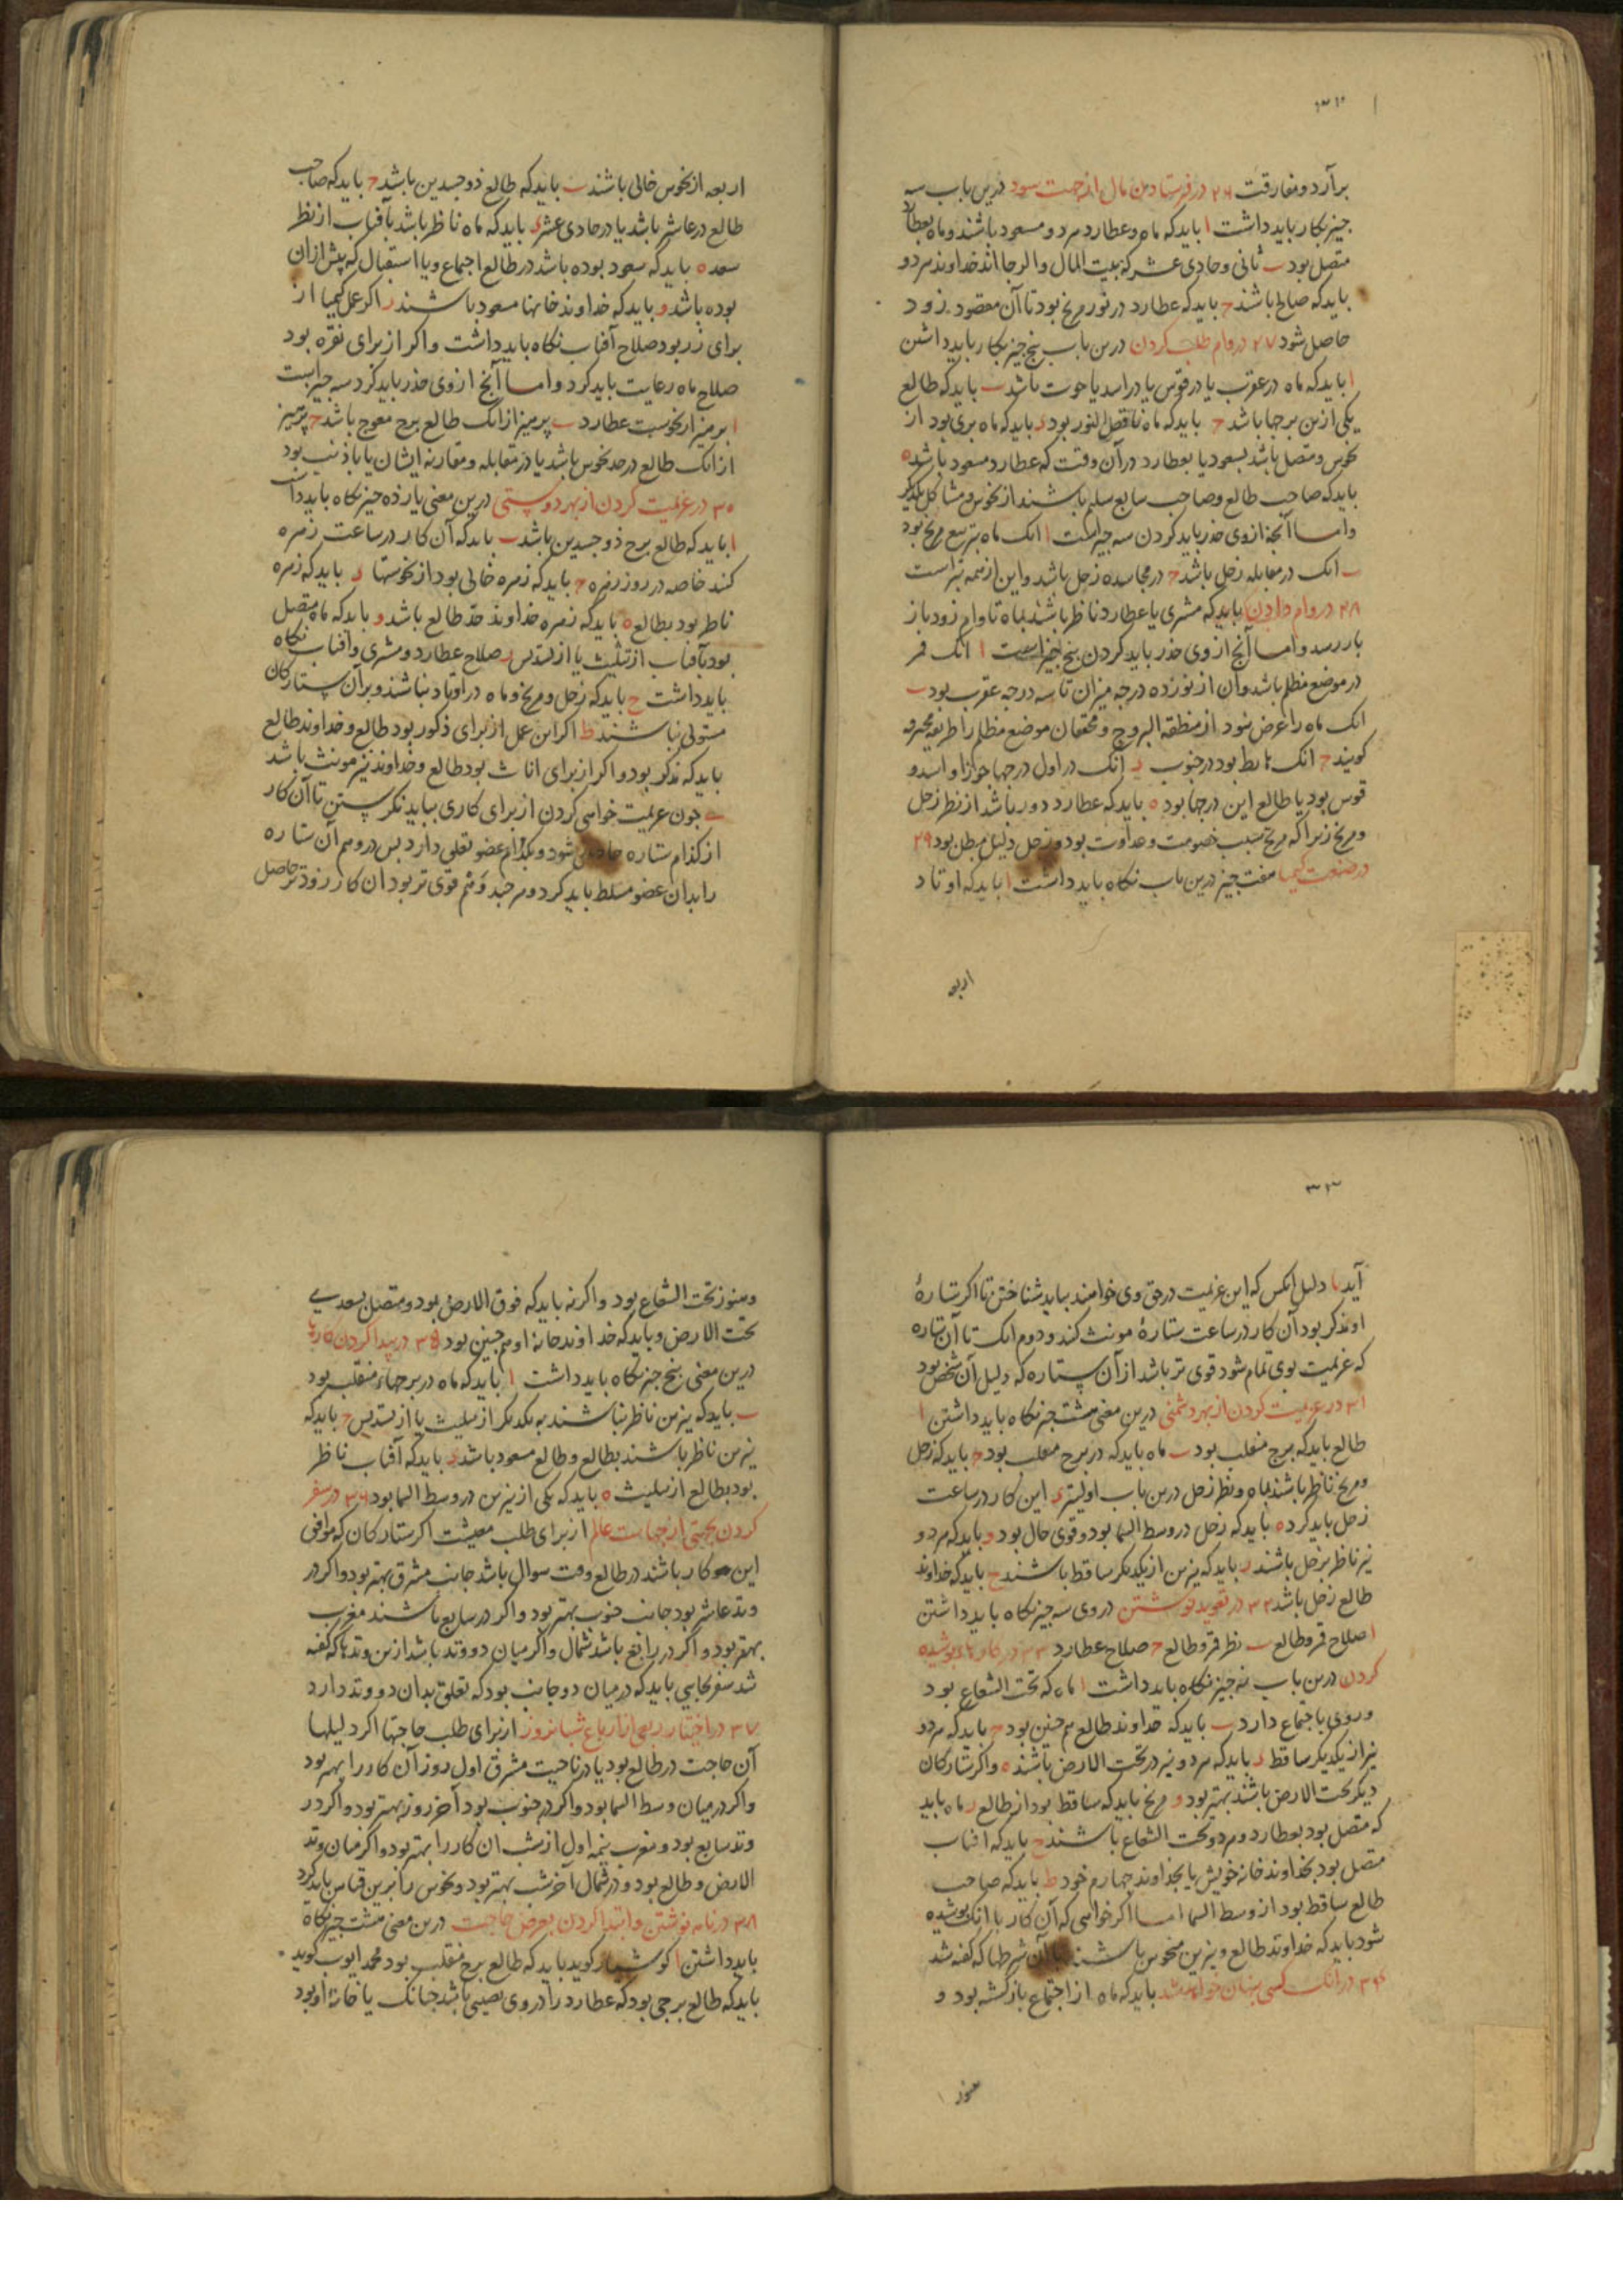 ۳۲
برآرد و مفارقت ۲۶ در فرستادن مال از جهت سود درین باب سه
چیز بکار باید داشت ا باید که ماه و عطارد هر دو مسعود باشند و ماه بعطارد
متصل بود ب ثانی و حادی عشر که بیت المال والرجا اند خداوند هر دو
باید که صالح باشند ج باید که عطارد در نور مریخ بود تا آن مقصود زود
حاصل شود ۲۷ در وام طلب کردن درین باب پنج چیز بکار باید داشتن
ا باید که ماه در عقرب یا در قوس یا در اسد یا حوت باشد ب باید که طالع
یکی ازین برجها باشد ج باید که ماه ناقص النور بود د باید که ماه بری بود از
نحوس و متصل باشد بسعود یا بعطارد در آن وقت که عطارد مسعود باشد ه
باید که صاحب طالع و صاحب سابع سلیم باشند از نحوس و مشاکل یکدیگر
واما آنچه ازوی حذر باید کردن سه چیز است ا انک ماه بتربیع مریخ بود
ب انک در مقابله زحل باشد ج در مجاسده زحل باشد و این از همه بتر است
۲۸ در وام دادن باید که مشتری یا عطارد ناظر باشند بماه تا وام زود باز
باز رسد و اما آنچ ازوی حذر باید کردن پنج چیز است ا انک قمر
در موضع مظلم باشد و آن از نوزده درجه میزان تا سه درجه عقرب بود ب
انک ماه را عرض نبود از منطقه البروج و محققان موضع مظلم را طریقه محترقه
گویند ج انک هابط بود در جنوب د آنک در اول درجها جوزا و اسد و
قوس بود یا طالع این درجها بود ه باید که عطارد دور باشد از نظر زحل
و مریخ زیرا که مریخ سبب خصومت و عداوت بود و زحل دلیل مطل بود ۲۹
در صنعت کیمیا هفت چیز درین باب نگاه باید داشت ا باید که اوتاد
اربعه
اربعه از نحوس خالی باشند ب باید که طالع ذو جسدین باشد ج باید که صاحب
طالع در عاشر باشد یا در حادی عشر د باید که ماه ناظر باشد بآفتاب از نظر
سعد ه باید که سعود بوده باشد در طالع اجتماع و یا استقبال که پیش از ان
بوده باشد و باید که خداوند خانها مسعود باشند ز اکر عمل کیمیا از
برای زر بود صلاح آفتاب نگاه باید داشت و اکر از برای نقره بود
صلاح ماه رعایت باید کرد و اما آنچ ازوی حذر باید کرد سه چیز است
ا پرهیز از نحوست عطارد ب پرهیز از انک طالع برج معوج باشد ج پرهیز
از انک طالع در حد نحوس باشد یا در مقابله و مقارنه ایشان یا با ذنب بود
۳۰ در عزیمت کردن از بهر دوستی درین معنی یازده چیز نگاه باید داشت
ا باید که طالع برج ذو جسدین باشد ب باید که آن کار در ساعت زهره
کنند خاصه در روز زهره ج باید که زهره خالی بود از نحوستها د باید که زهره
ناظر بود بطالع ه باید که زهره خداوند حد طالع باشد و باید که ماه متصل
بود بآفتاب از تثلیث یا از تسدیس ز صلاح عطارد و مشتری و آفتاب نگاه
باید داشت ح باید که زحل و مریخ و ماه در اوتاد نباشند و بر آن ستارکان
مستولی نباشند ط اکر این عمل از برای ذکور بود طالع و خداوند طالع
باید که مذکر بود و اکر از برای اناث بود طالع و خداوند نیز مونث باشد
ی جون عزیمت خواهی کردن از برای کاری بباید نکریستن تا آن کار
از کدام ستاره حادث شود و بکدام عضو تعلق دارد پس در وهم آن ستاره
را بدان عضو مسلط باید کرد و هر چند وهم قوی تر بود ان کار زودتر حاصل
۳۳
آید یا دلیل انکس که این عزیمت در حق وی خوانند بباید شناختن تا اکر ستارهٔ
او مذکر بود آن کار در ساعت ستارهٔ مونث کند و دوم انک تا آن ستاره
که عزیمت بوی تمام شود قوی تر باشد از آن ستاره که دلیل آن شخص بود
۳۱ در عزیمت کردن از بهر دشمنی درین معنی هشت چیز نگاه باید داشتن ا
طالع باید که برج منقلب بود ب ماه باید که در برج منقلب بود ج باید که زحل
و مریخ ناظر باشند بماه و نظر زحل درین باب اولیتر د این کار در ساعت
زحل باید کرد ه باید که زحل در وسط السما بود و قوی حال بود و باید که هر دو
نیر ناظر بزحل باشند ز باید که نیرین از یکدیکر ساقط باشند ح باید که خداوند
طالع زحل باشد ۳۲ در تعوید نوشتن در وی سه چیز نگاه باید داشتن
ا صلاح قمر و طالع ب نظر قمر و طالع ج صلاح عطارد ۳۳ در کارهاء پوشیده
کردن درین باب نه چیز نگاه باید داشت ا ماه که تحت الشعاع بود
و روی باجتماع دارد ب باید که خداوند طالع هم چنین بود ج باید که هر دو
نیر از یکدیکر ساقط د باید که هر دو نیر در تحت الارض باشند ه و اکر ستارکان
دیکر تحت الارض باشند بهتر بود و مریخ باید که ساقط بود از طالع ز ماه باید
که متصل بود بعطارد و هر دو تحت الشعاع باشند ح باید که افتاب
متصل بود بخداوند خانه خویش یا بخداوند چهارم خود ط باید که صاحب
طالع ساقط بود از وسط السما اما اکر خواهی که آن کار با انک پوشیده
شود باید که خداوند طالع و نیرین منحوس باشند با آن شرطها که کفته شد
۳۴ در انک کسی پنهان خواهد شد باید که ماه از اجتماع بازکشته بود و
هنوز
و هنوز تحت الشعاع بود و اکر نه باید که فوق الارض بود و متصل بسعدی
تحت الارض و باید که خداوند خانهٔ او هم چنین بود ۳۵ در پیدا کردن کارها
درین معنی پنج چیز نگاه باید داشت ا باید که ماه در برجهاء منقلب بود
ب باید که نیرین ناظر باشند به یکدیکر از تثلیث یا از تسدیس ج باید که
نیرین ناظر باشند بطالع و طالع مسعود باشد د باید که آفتاب ناظر
بود بطالع از تثلیث ه باید که یکی از نیرین در وسط السما بود ۳۶ در سفر
کردن بجهتی از جهات عالم از برای طلب معیشت اکر ستارکان که موافق
این کار باشند در طالع وقت سوال باشد جانب مشرق بهتر بود و اکر در
وتد عاشر بود جانب جنوب بهتر بود و اکر در سابع باشند مغرب
بهتر بود و اکر در رابع باشد شمال و اکر میان دو وتد باشد ازین وتدها که کفته
شد سفر بجایی باید که در میان دو جانب بود که تعلق بدان دو وتد دارد
۳۷ در اختیار ربعی از ارباع شبانروز از برای طلب حاجتها اکر دلیلها
آن حاجت در طالع بود یا در ناحیت مشرق اول روز آن کار را بهتر بود
و اکر در میان وسط السما بود و اکر در جنوب بود آخر روز بهتر بود و اکر در
وتد سابع بود و مغرب نیمه اول از شب ان کار را بهتر بود و اکر میان وتد
الارض و طالع بود و در شمال آخر شب بهتر بود و نحوس را برین قیاس باید کرد
۳۸ در نامه نوشتن و ابتدا کردن بعرض حاجت درین معنی هشت چیز نگاه
باید داشتن ا کوشیار کوید باید که طالع برج منقلب بود محمد ایوب کوید
باید که طالع برجی بود که عطارد را در وی نصیبی باشد چنانک یا خانهٔ او بود